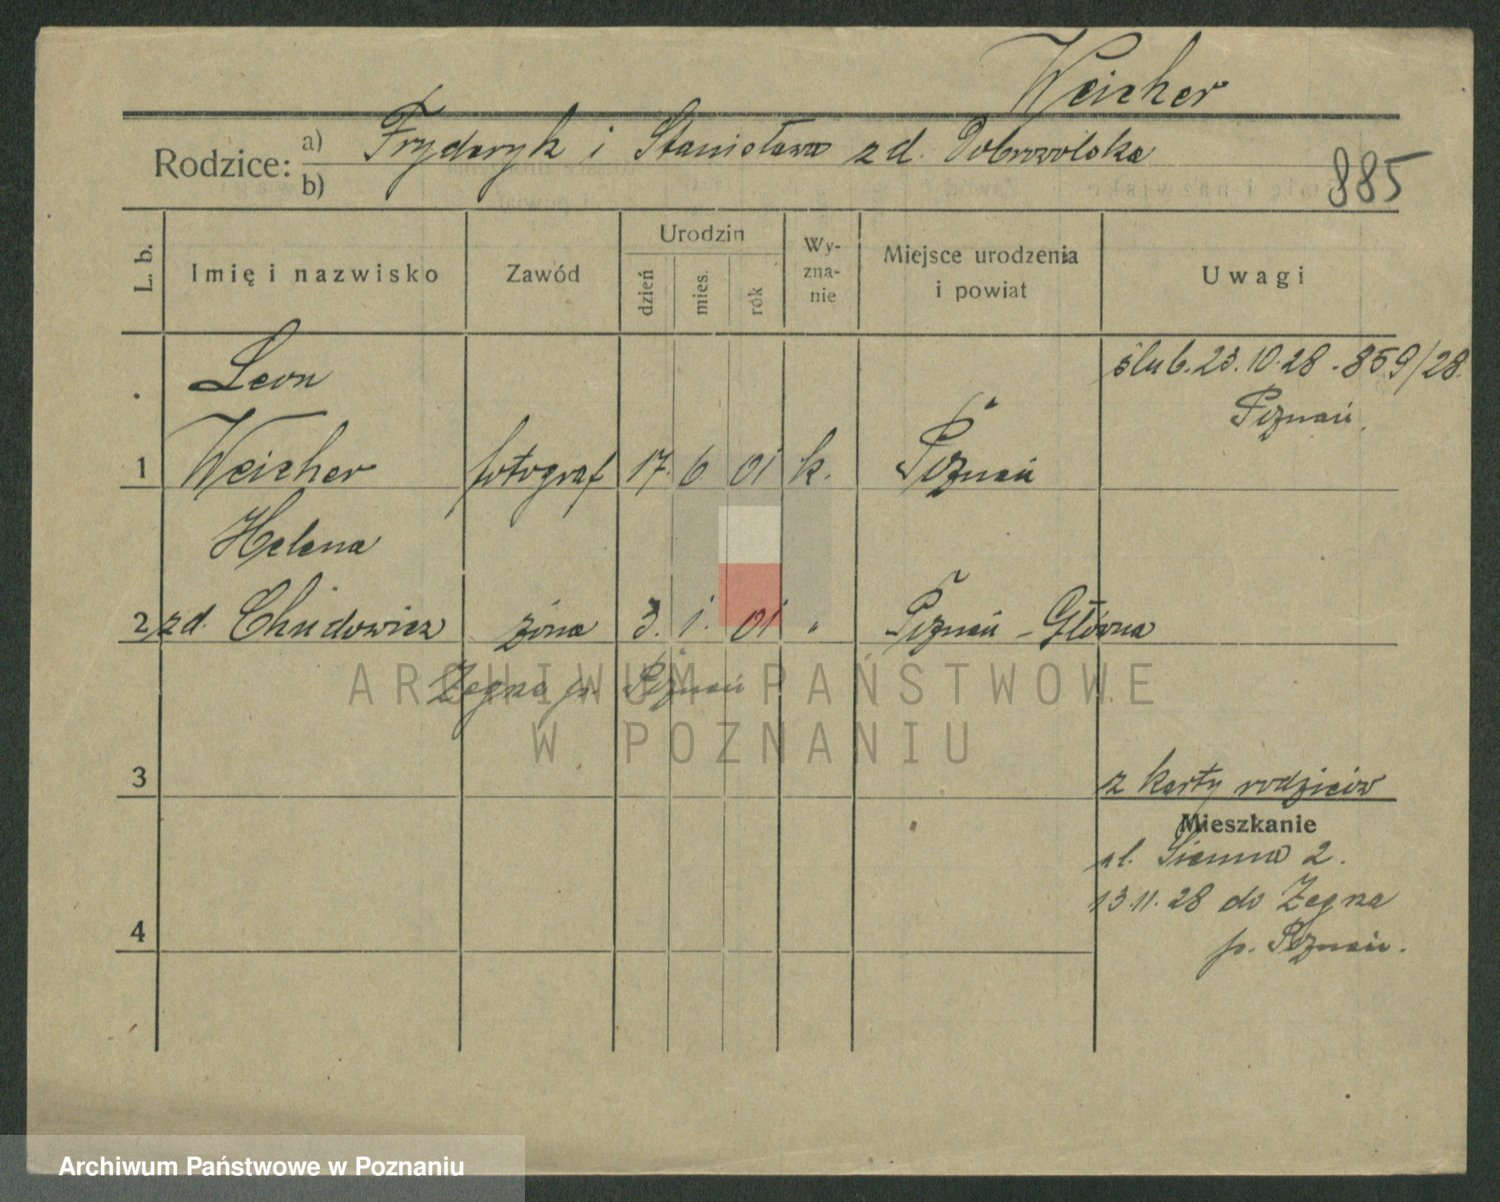 Weicher
Rodzice: a) Fryderyk i Stanisława zd. Dobrowolska
b)
885
L. b.
Imię i nazwisko
Zawód
Urodzin
dzień
mies.
rok
Wy-
zna-
nie
Miejsce urodzenia
i powiat
Uwagi
Leon
ślub. 23.10.28 - 859/28.
Poznań.
1 Weicher fotograf 17. 6 01 k. Poznań
Helena
2 zd. Chudowicz żona 3. 1. 01 " Poznań - Główna
Żegrze p. Poznań
ARCHIWUM PAŃSTWOWE
W POZNANIU
3
z karty rodziców
Mieszkanie
ul. Sienna 2.
13.11.28 do Żegrza
4
p. Poznań.
Archiwum Państwowe w Poznaniu